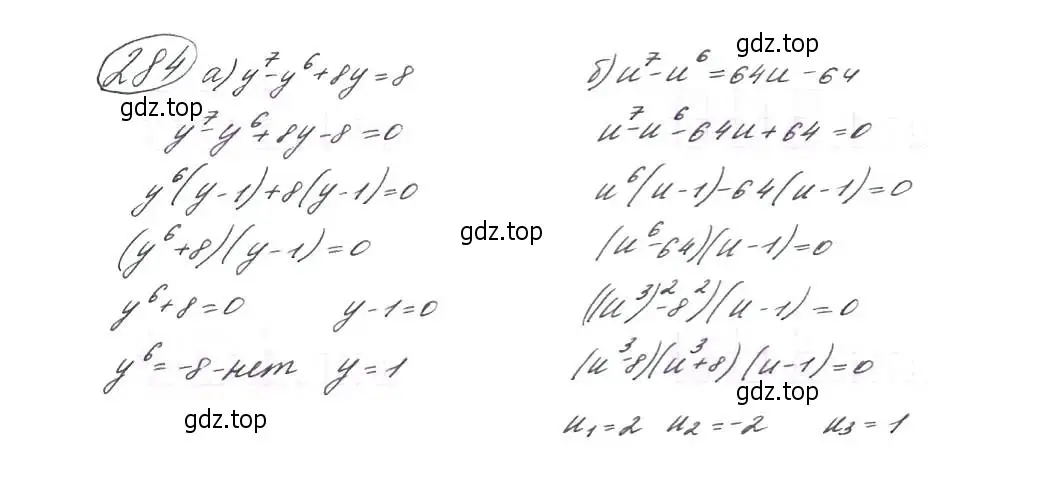 284 а) y⁷-y⁶+8y=8
gdz.top
y⁷-y⁶+8y-8=0
y⁶(y-1)+8(y-1)=0
(y⁶+8)(y-1)=0
y⁶+8=0 y-1=0
y⁶=-8-нет y=1
gdz.top
gdz.top
gdz.top
б) u⁷-u⁶=64u-64
u⁷-u⁶-64u+64=0
u⁶(u-1)-64(u-1)=0
(u⁶-64)(u-1)=0
((u³)²-8²)(u-1)=0
(u³-8)(u³+8)(u-1)=0
gdz.top
u₁=2 u₂=-2 u₃=1